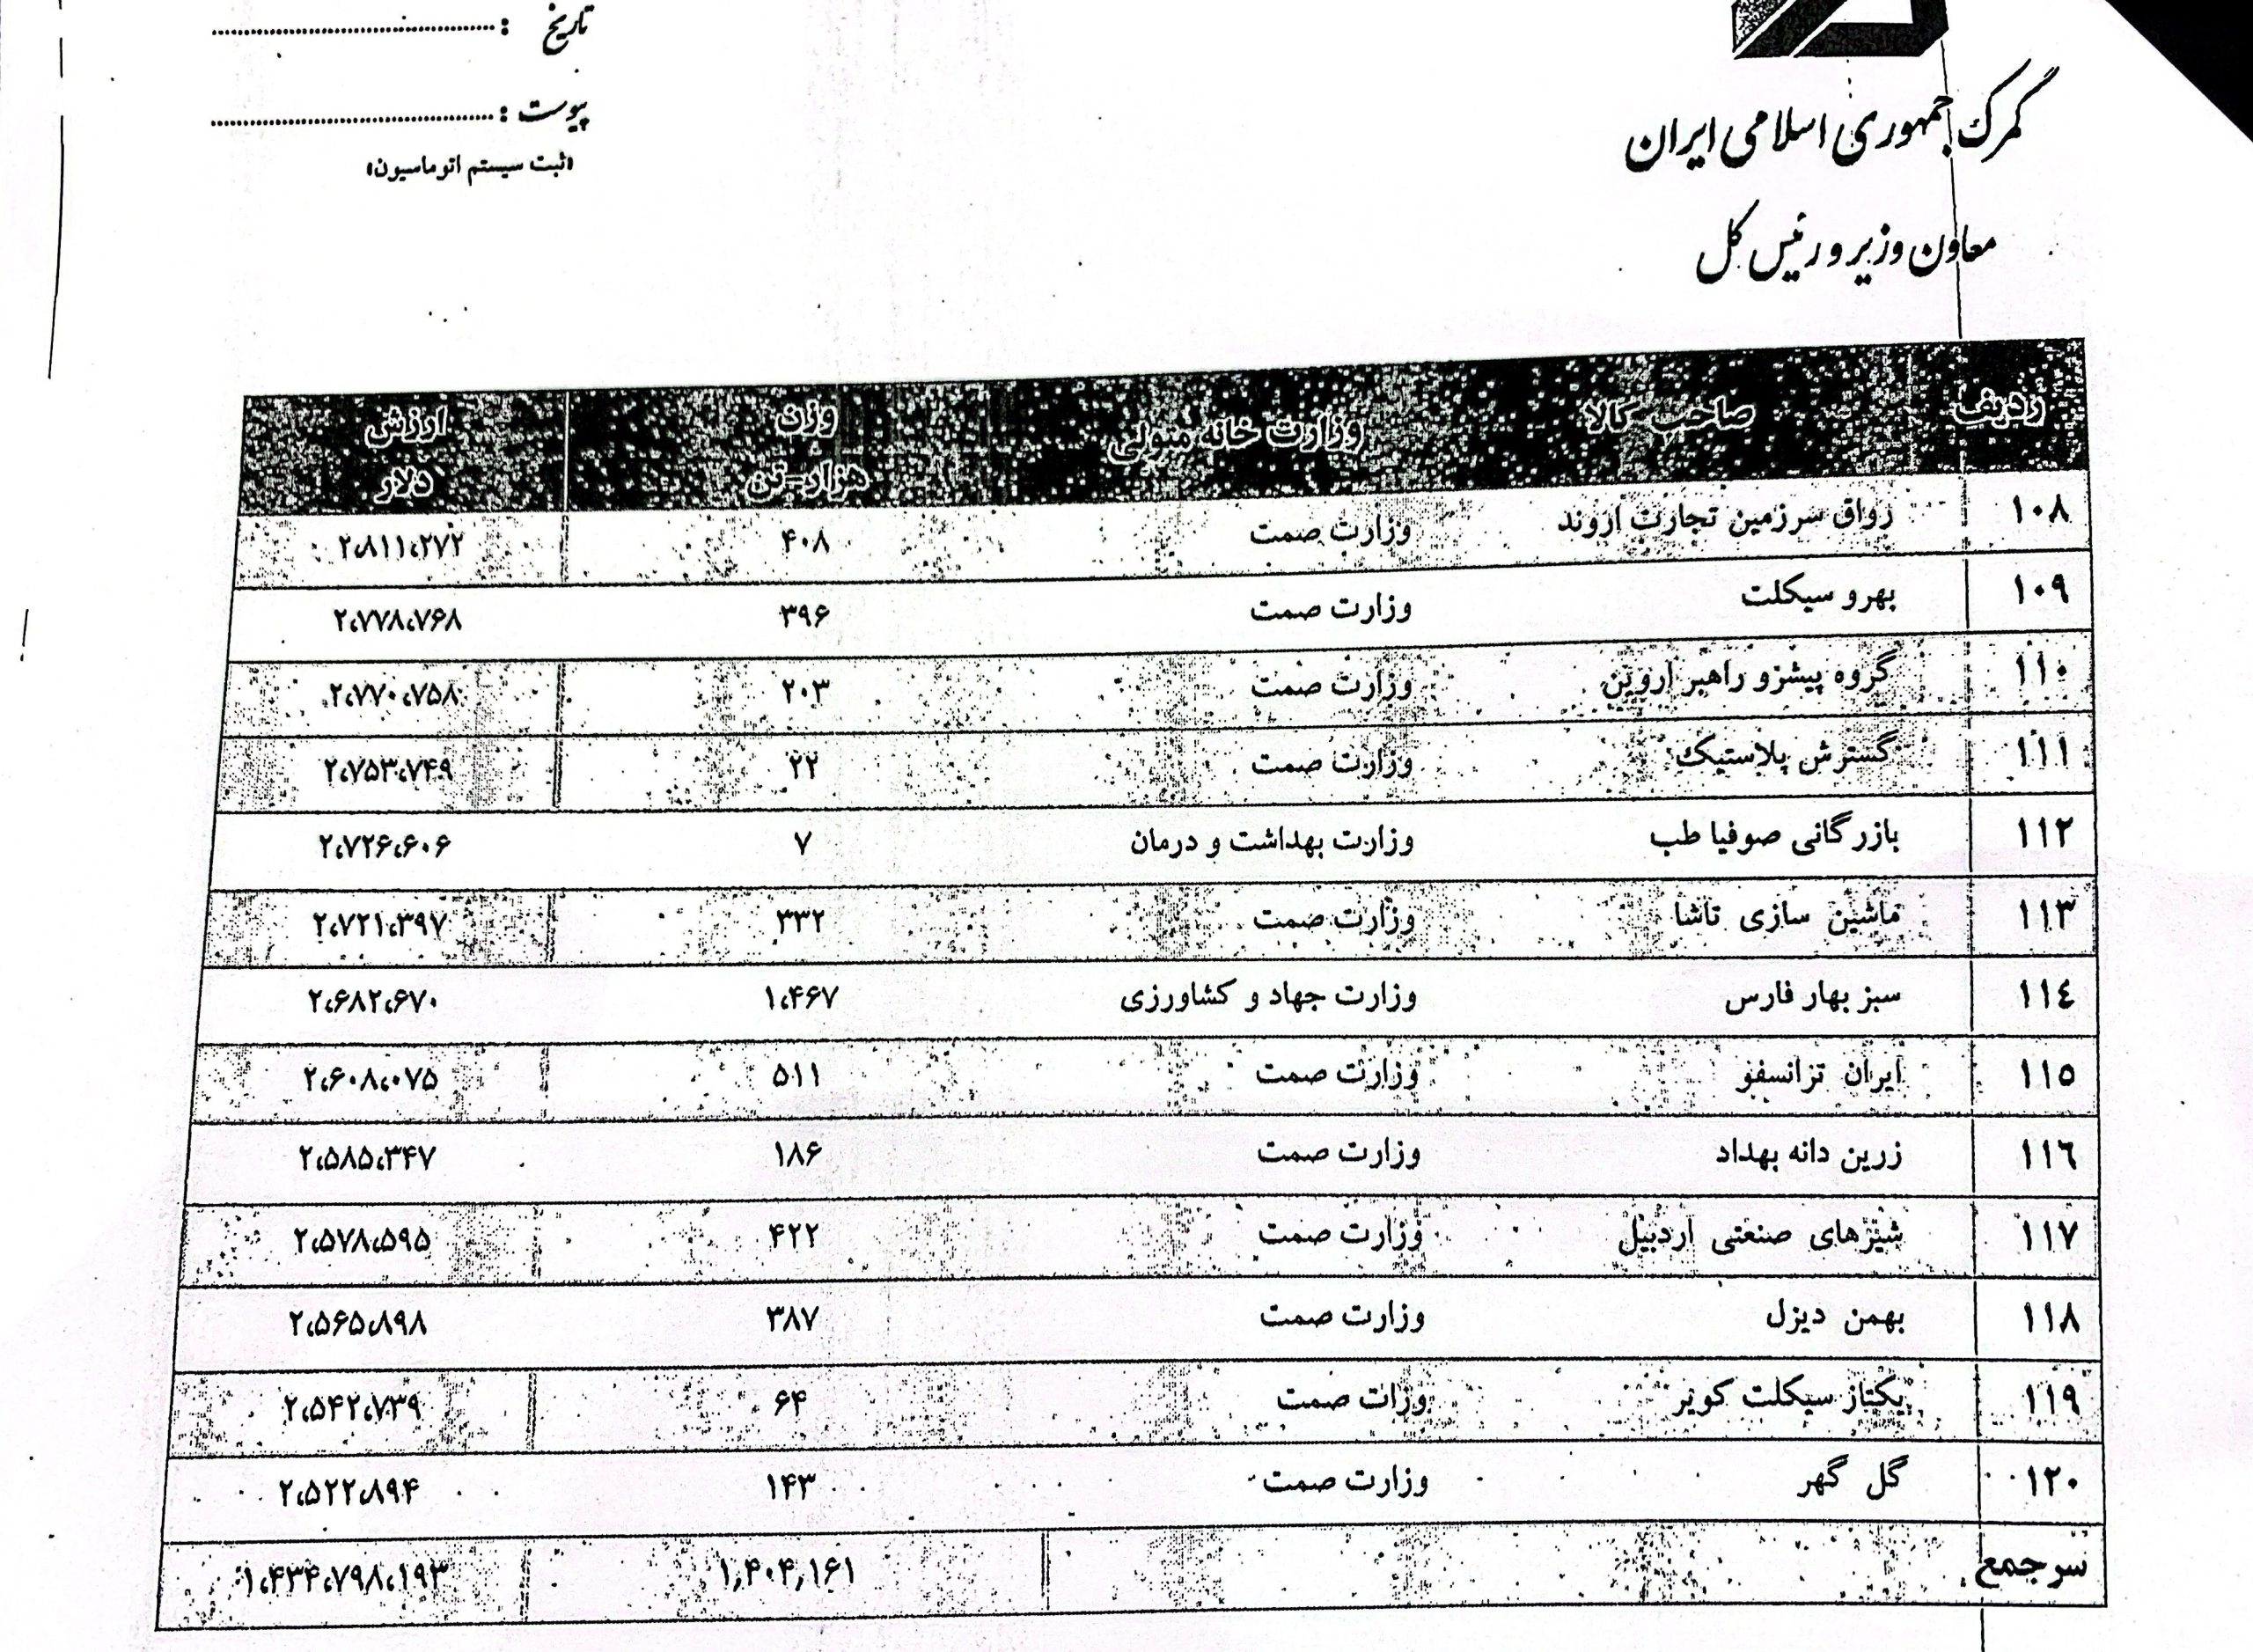 تاریخ : ..........................................
پیوست : ..........................................
«ثبت سیستم اتوماسیون»
گمرک جمهوری اسلامی ایران
معاون وزیر و رئیس کل
ردیف صاحب کالا وزارت خانه متولی وزن هزار-تن ارزش دلار
۱۰۸ رواق سرزمین تجارت اروند وزارت صمت ۴۰۸ ۲،۸۱۱،۲۷۲
۱۰۹ بهرو سیکلت وزارت صمت ۳۹۶ ۲،۷۷۸،۷۶۸
۱۱۰ گروه پیشرو راهبر اروین وزارت صمت ۲۰۳ ۲،۷۷۰،۷۵۸
۱۱۱ گسترش پلاستیک وزارت صمت ۲۲ ۲،۷۵۳،۷۴۹
۱۱۲ بازرگانی صوفیا طب وزارت بهداشت و درمان ۷ ۲،۷۲۶،۶۰۶
۱۱۳ ماشین سازی تاشا وزارت صمت ۳۳۲ ۲،۷۲۱،۳۹۷
۱۱٤ سبز بهار فارس وزارت جهاد و کشاورزی ۱،۴۶۷ ۲،۶۸۲،۶۷۰
۱۱۵ ایران ترانسفو وزارت صمت ۵۱۱ ۲،۶۰۸،۰۷۵
۱۱٦ زرین دانه بهداد وزارت صمت ۱۸۶ ۲،۵۸۵،۳۴۷
۱۱۷ شیرهای صنعتی اردبیل وزارت صمت ۴۲۲ ۲،۵۷۸،۵۹۵
۱۱۸ بهمن دیزل وزارت صمت ۳۸۷ ۲،۵۶۵،۸۹۸
۱۱۹ یکتاز سیکلت کویر وزات صمت ۶۴ ۲،۵۴۲،۷۳۹
۱۲۰ گل گهر وزارت صمت ۱۴۳ ۲،۵۲۲،۸۹۴
سرجمع ۱,۴۰۴,۱۶۱ ۱،۴۳۴،۷۹۸،۱۹۳